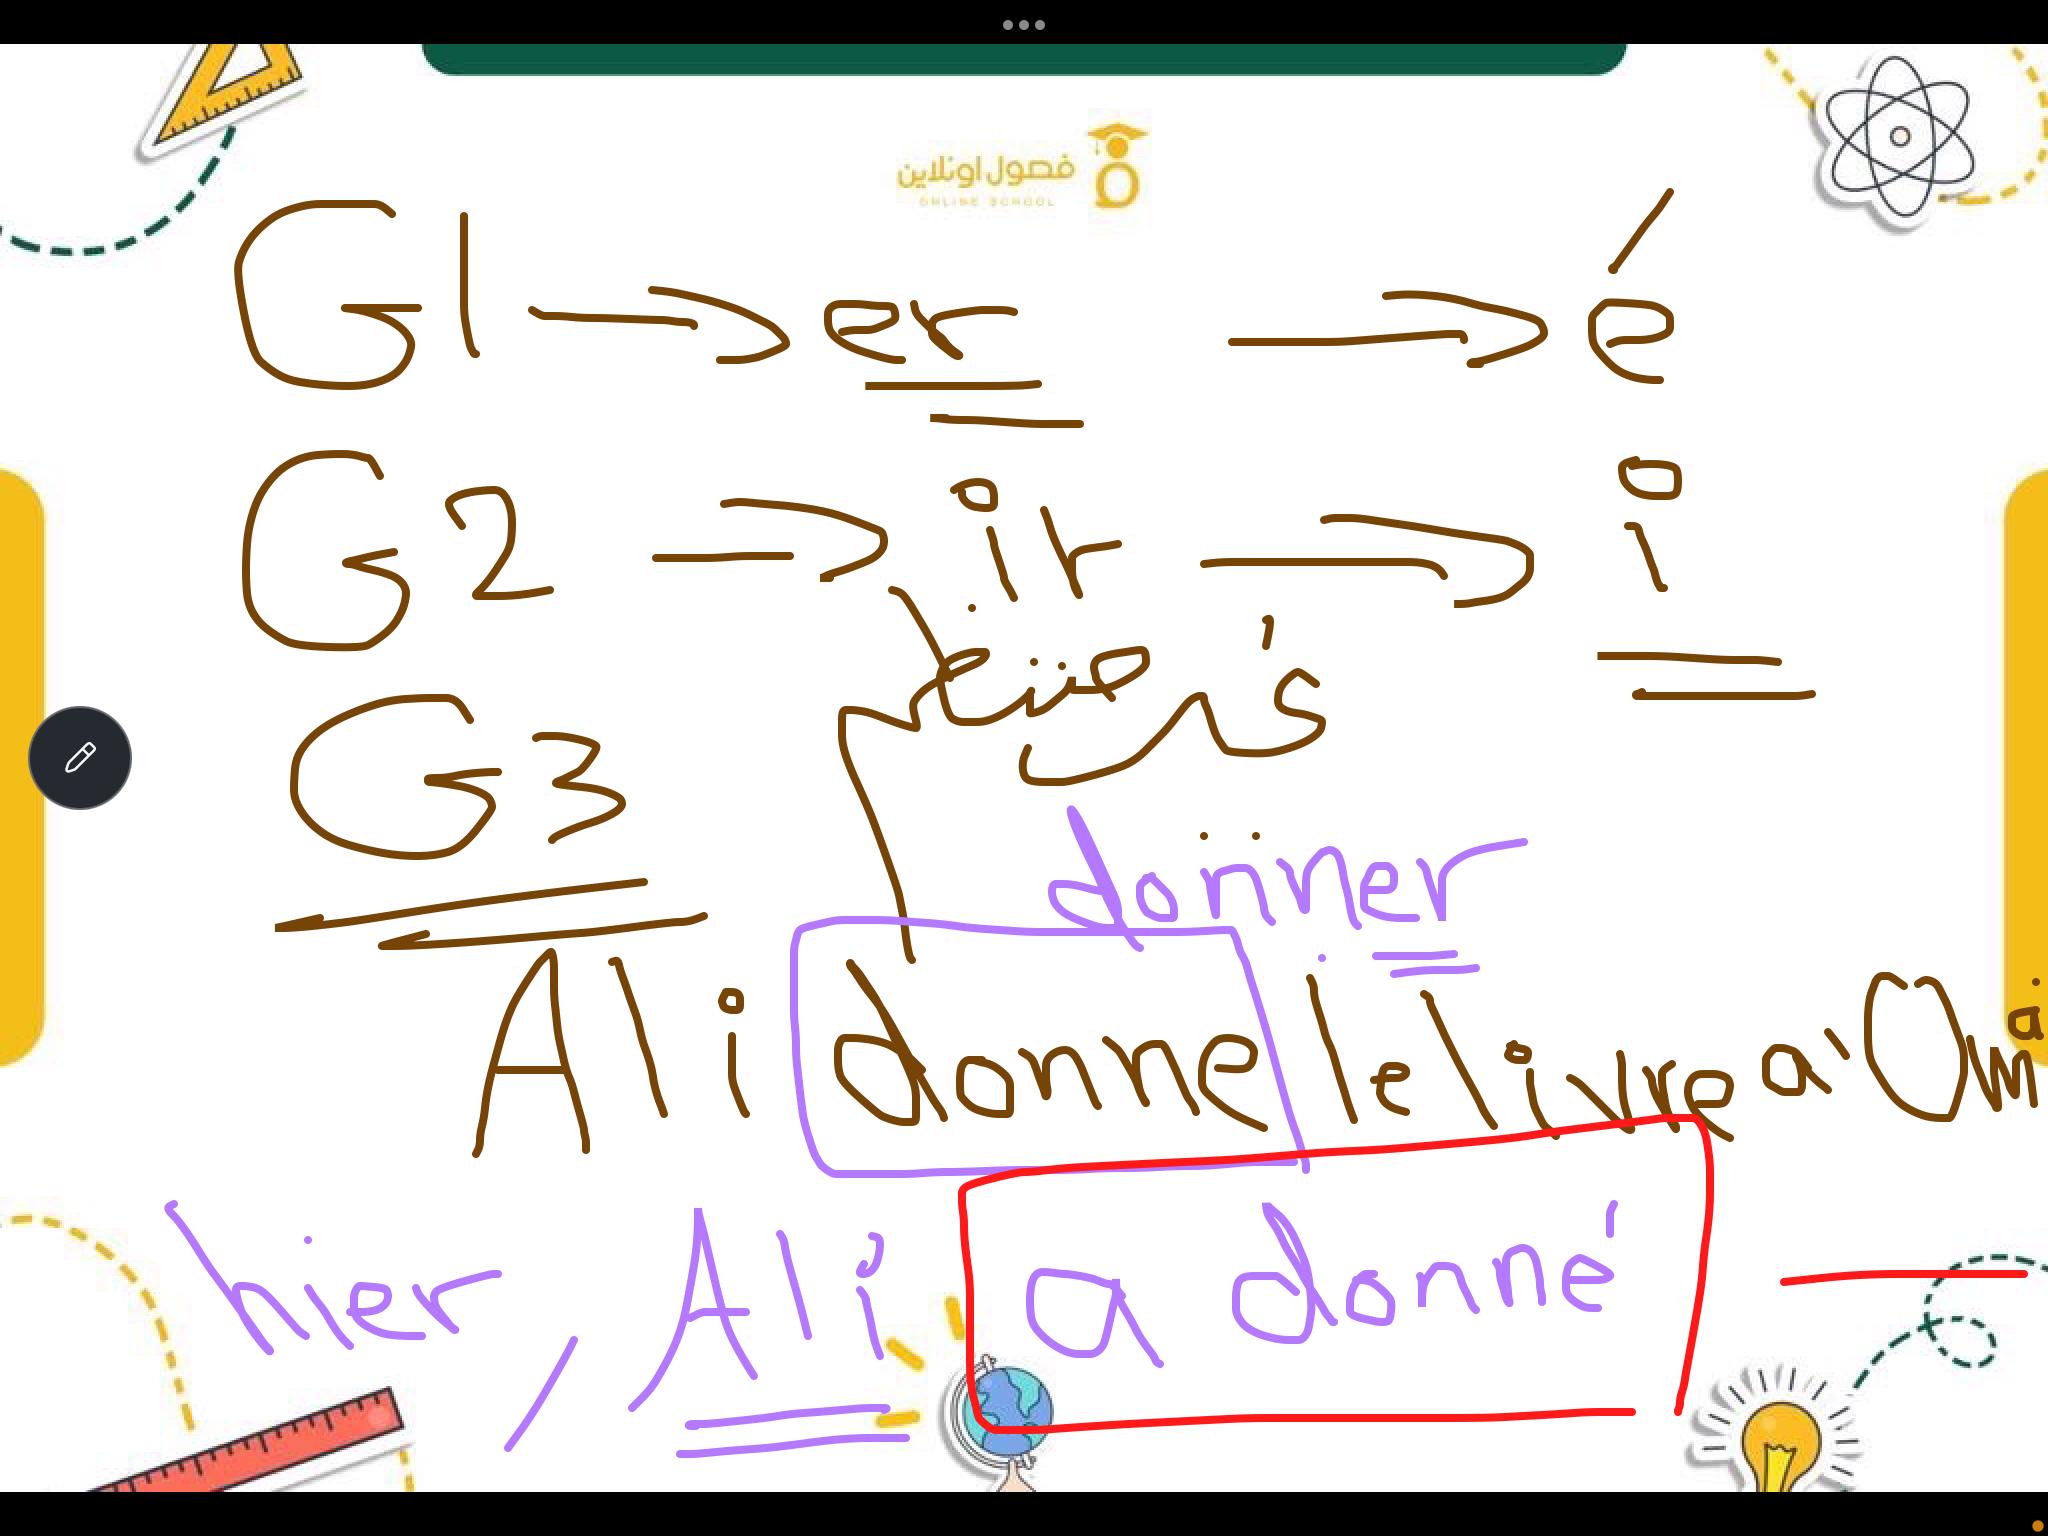 فصول اونلاين
ONLINE SCHOOL
G1 → er → é
G2 → ir → i
G3
donner
Ali donne le livre à Oma
hier, Ali a donné